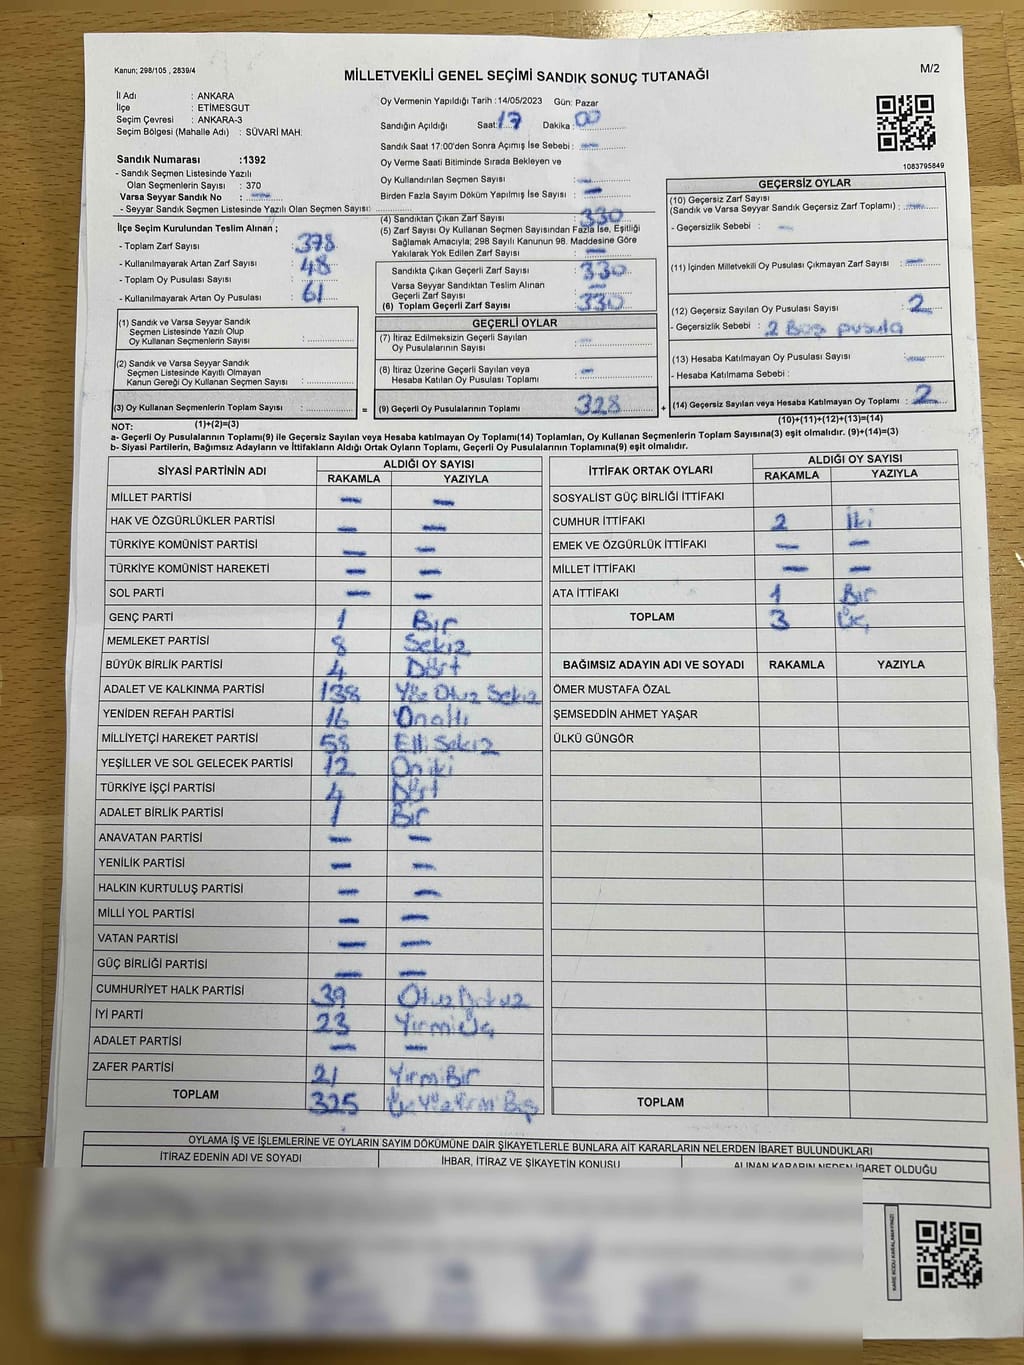 Kanun; 298/105 , 2839/4
M/2
MİLLETVEKİLİ GENEL SEÇİMİ SANDIK SONUÇ TUTANAĞI
İl Adı : ANKARA
İlçe : ETİMESGUT
Seçim Çevresi : ANKARA-3
Seçim Bölgesi (Mahalle Adı) : SÜVARİ MAH.
Sandık Numarası :1392
- Sandık Seçmen Listesinde Yazılı
Olan Seçmenlerin Sayısı : 370
Varsa Seyyar Sandık No : —
- Seyyar Sandık Seçmen Listesinde Yazılı Olan Seçmen Sayısı:
İlçe Seçim Kurulundan Teslim Alınan ;
- Toplam Zarf Sayısı : 378
- Kullanılmayarak Artan Zarf Sayısı : 48
- Toplam Oy Pusulası Sayısı :
- Kullanılmayarak Artan Oy Pusulası : 61
(1) Sandık ve Varsa Seyyar Sandık
Seçmen Listesinde Yazılı Olup
Oy Kullanan Seçmenlerin Sayısı :
(2) Sandık ve Varsa Seyyar Sandık
Seçmen Listesinde Kayıtlı Olmayan
Kanun Gereği Oy Kullanan Seçmen Sayısı :
(3) Oy Kullanan Seçmenlerin Toplam Sayısı :
(1)+(2)=(3)
Oy Vermenin Yapıldığı Tarih :14/05/2023 Gün: Pazar
Sandığın Açıldığı Saat: 17 Dakika : 00
Sandık Saat 17:00'den Sonra Açımış İse Sebebi : —
Oy Verme Saati Bitiminde Sırada Bekleyen ve
Oy Kullandırılan Seçmen Sayısı : —
Birden Fazla Sayım Döküm Yapılmış İse Sayısı : —
(4) Sandıktan Çıkan Zarf Sayısı : 330
(5) Zarf Sayısı Oy Kullanan Seçmen Sayısından Fazla İse, Eşitliği
Sağlamak Amacıyla; 298 Sayılı Kanunun 98. Maddesine Göre
Yakılarak Yok Edilen Zarf Sayısı : —
Sandıkta Çıkan Geçerli Zarf Sayısı : 330
Varsa Seyyar Sandıktan Teslim Alınan
Geçerli Zarf Sayısı : —
(6) Toplam Geçerli Zarf Sayısı : 330
GEÇERLİ OYLAR
(7) İtiraz Edilmeksizin Geçerli Sayılan
Oy Pusulalarının Sayısı : —
(8) İtiraz Üzerine Geçerli Sayılan veya
Hesaba Katılan Oy Pusulası Toplamı : —
= (9) Geçerli Oy Pusulalarının Toplamı : 328 +
1083795849
GEÇERSİZ OYLAR
(10) Geçersiz Zarf Sayısı
(Sandık ve Varsa Seyyar Sandık Geçersiz Zarf Toplamı) : —
- Geçersizlik Sebebi : —
(11) İçinden Milletvekili Oy Pusulası Çıkmayan Zarf Sayısı : —
(12) Geçersiz Sayılan Oy Pusulası Sayısı : 2
- Geçersizlik Sebebi : 2 Boş pusula
(13) Hesaba Katılmayan Oy Pusulası Sayısı : —
- Hesaba Katılmama Sebebi :
(14) Geçersiz Sayılan veya Hesaba Katılmayan Oy Toplamı : 2
(10)+(11)+(12)+(13)=(14)
NOT:
a- Geçerli Oy Pusulalarının Toplamı(9) ile Geçersiz Sayılan veya Hesaba katılmayan Oy Toplamı(14) Toplamları, Oy Kullanan Seçmenlerin Toplam Sayısına(3) eşit olmalıdır. (9)+(14)=(3)
b- Siyasi Partilerin, Bağımsız Adayların ve İttifakların Aldığı Ortak Oyların Toplamı, Geçerli Oy Pusulalarının Toplamına(9) eşit olmalıdır.
SİYASİ PARTİNİN ADI ALDIĞI OY SAYISI
RAKAMLA YAZIYLA
MİLLET PARTİSİ — —
HAK VE ÖZGÜRLÜKLER PARTİSİ — —
TÜRKİYE KOMÜNİST PARTİSİ — —
TÜRKİYE KOMÜNİST HAREKETİ — —
SOL PARTİ — —
GENÇ PARTİ 1 Bir
MEMLEKET PARTİSİ 8 Sekiz
BÜYÜK BİRLİK PARTİSİ 4 Dört
ADALET VE KALKINMA PARTİSİ 138 Yüz Otuz Sekiz
YENİDEN REFAH PARTİSİ 16 Onaltı
MİLLİYETÇİ HAREKET PARTİSİ 58 Elli Sekiz
YEŞİLLER VE SOL GELECEK PARTİSİ 12 Oniki
TÜRKİYE İŞÇİ PARTİSİ 4 Dört
ADALET BİRLİK PARTİSİ 1 Bir
ANAVATAN PARTİSİ — —
YENİLİK PARTİSİ — —
HALKIN KURTULUŞ PARTİSİ — —
MİLLİ YOL PARTİSİ — —
VATAN PARTİSİ — —
GÜÇ BİRLİĞİ PARTİSİ — —
CUMHURİYET HALK PARTİSİ 39 Otuz Dokuz
İYİ PARTİ 23 Yirmi Üç
ADALET PARTİSİ — —
ZAFER PARTİSİ 21 Yirmi Bir
TOPLAM 325 Üç Yüz Yirmi Beş
İTTİFAK ORTAK OYLARI ALDIĞI OY SAYISI
RAKAMLA YAZIYLA
SOSYALİST GÜÇ BİRLİĞİ İTTİFAKI
CUMHUR İTTİFAKI 2 İki
EMEK VE ÖZGÜRLÜK İTTİFAKI — —
MİLLET İTTİFAKI — —
ATA İTTİFAKI 1 Bir
TOPLAM 3 Üç
BAĞIMSIZ ADAYIN ADI VE SOYADI RAKAMLA YAZIYLA
ÖMER MUSTAFA ÖZAL
ŞEMSEDDİN AHMET YAŞAR
ÜLKÜ GÜNGÖR
TOPLAM
OYLAMA İŞ VE İŞLEMLERİNE VE OYLARIN SAYIM DÖKÜMÜNE DAİR ŞİKAYETLERLE BUNLARA AİT KARARLARIN NELERDEN İBARET BULUNDUKLARI
İTİRAZ EDENİN ADI VE SOYADI İHBAR, İTİRAZ VE ŞİKAYETİN KONUSU ALINAN KARARIN NEDEN İBARET OLDUĞU
KARE KODU KARALAMAYINIZ!